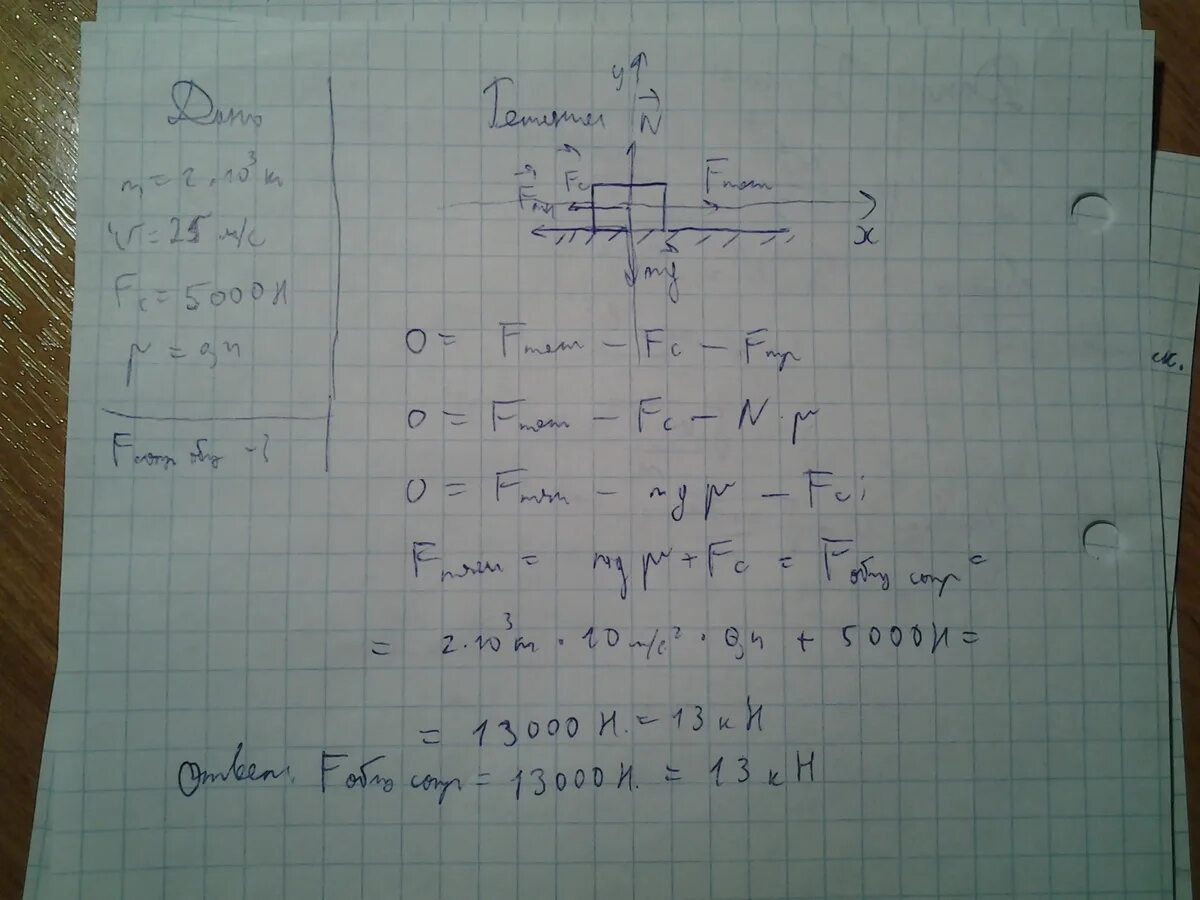 Дано
m = 2·10³ кг
v = 25 м/с
Fс = 5000 Н
μ = 0,4
Fсопр общ - ?
Решение
y
N
Fтр
Fс
Fтяг
x
mg
0 = Fтяг - Fс - Fтр
0 = Fтяг - Fс - N·μ
0 = Fтяги - mgμ - Fс;
Fтяги = mgμ + Fс = Fобщ сопр =
= 2·10³ кг · 10 м/с² · 0,4 + 5000 Н =
= 13000 Н. = 13 кН
Ответ. Fобщ сопр = 13000 Н. = 13 кН
ск.